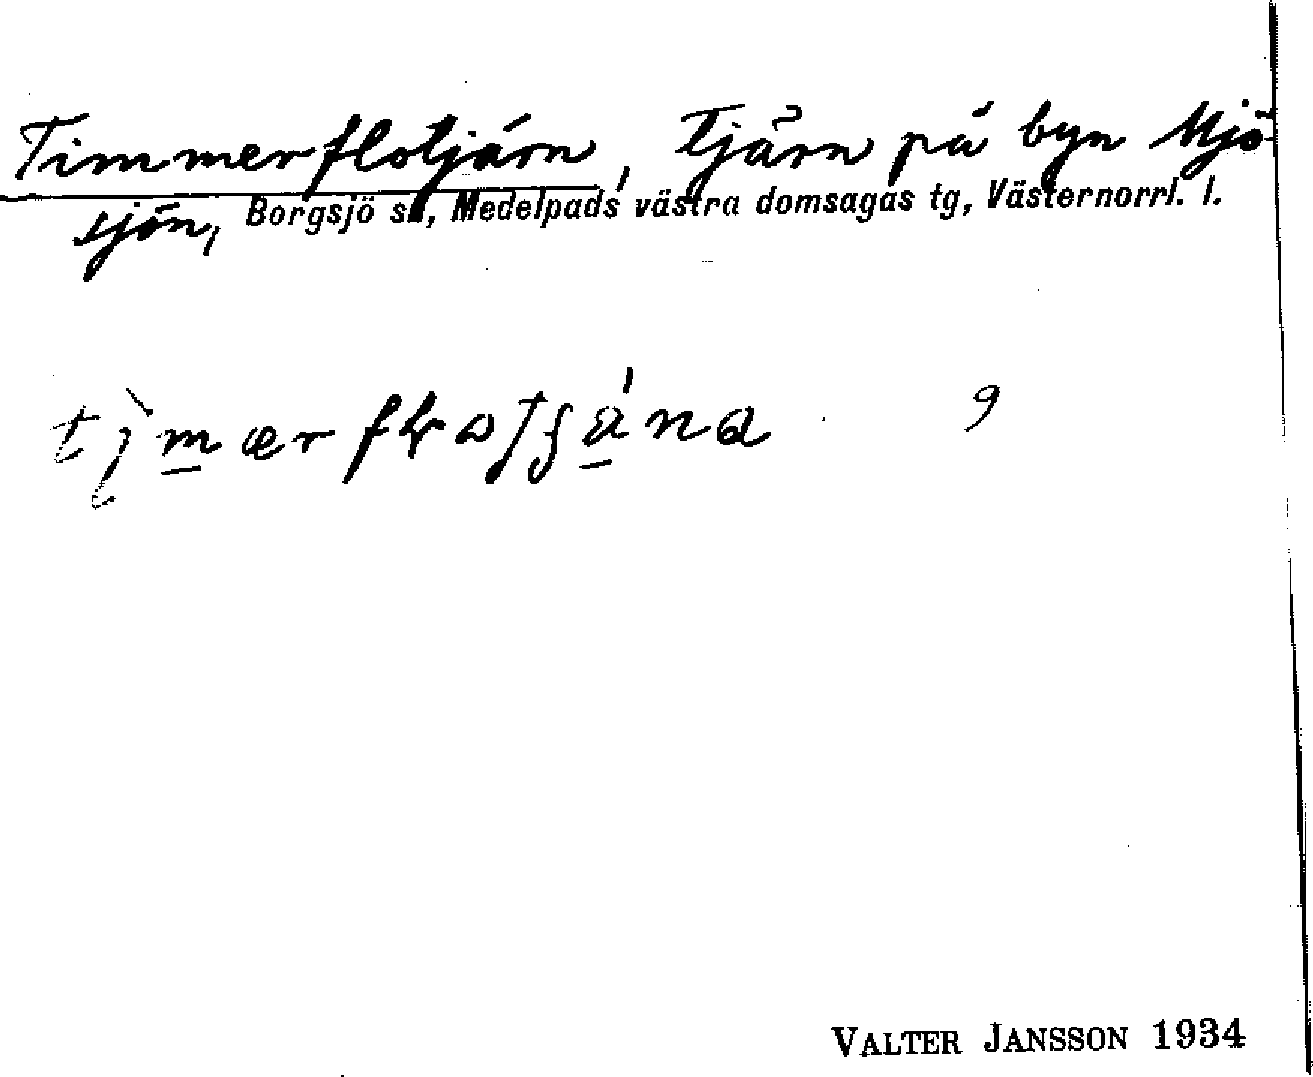 Timmerflotjärn, Tjärn på byn Mjö
sjön, Borgsjö sn, Medelpads västra domsagas tg, Västernorrl. l.
VALTER JANSSON 1934